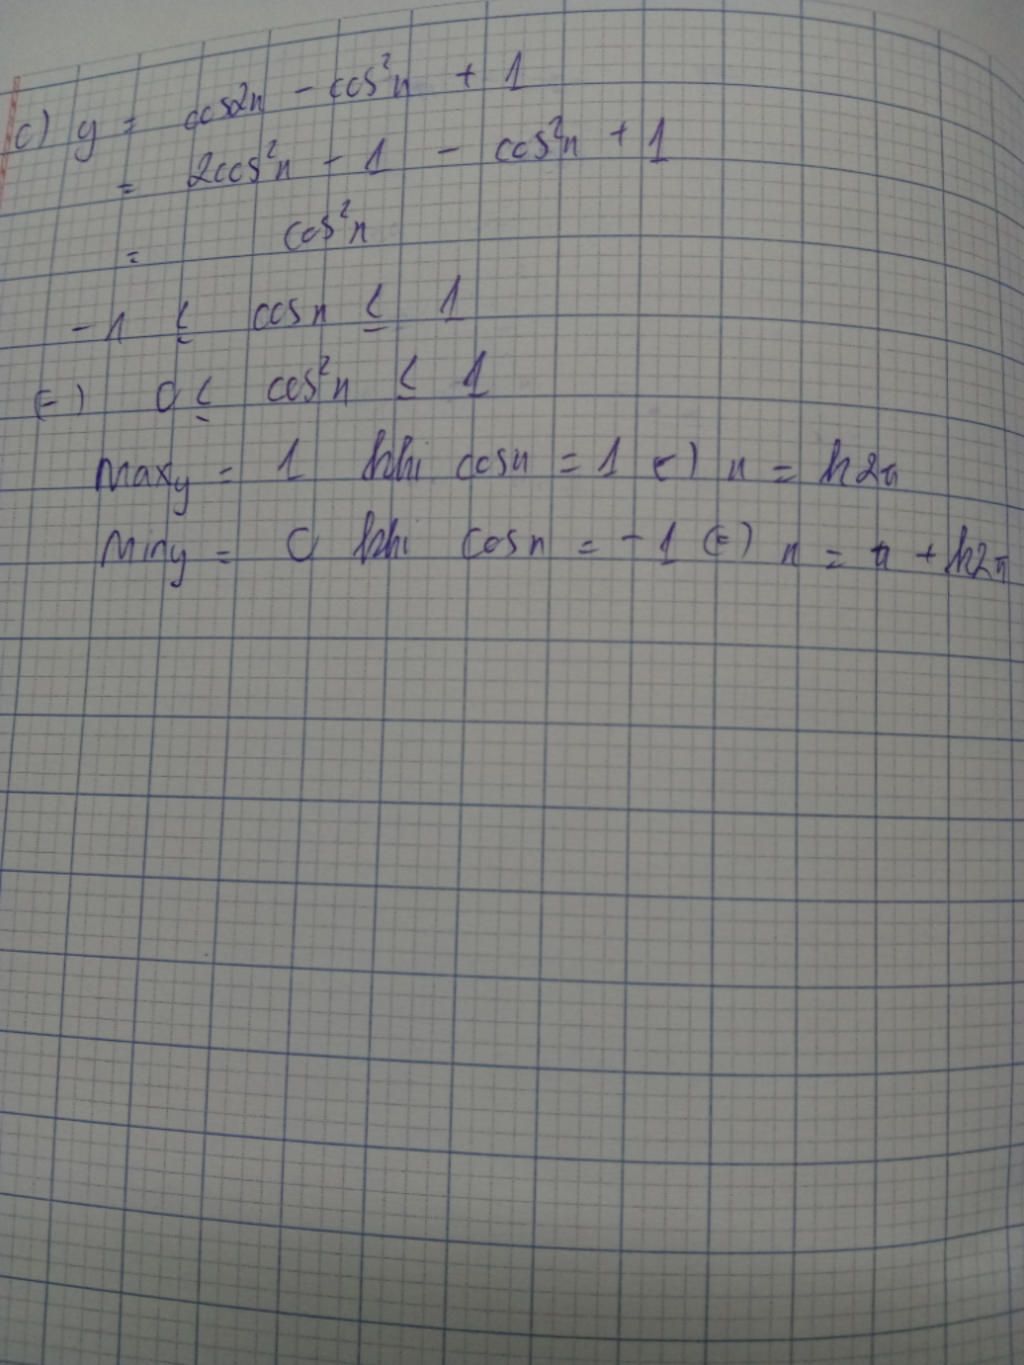 c) y = cos2x - cos²x + 1
= 2cos²x - 1 - cos²x + 1
= cos²x
-1 ≤ cosx ≤ 1
(=) 0 ≤ cos²x ≤ 1
Maxy = 1 khi cosx = 1 (=) x = k2π
Miny = 0 khi cosx = -1 (=) x = π + k2π